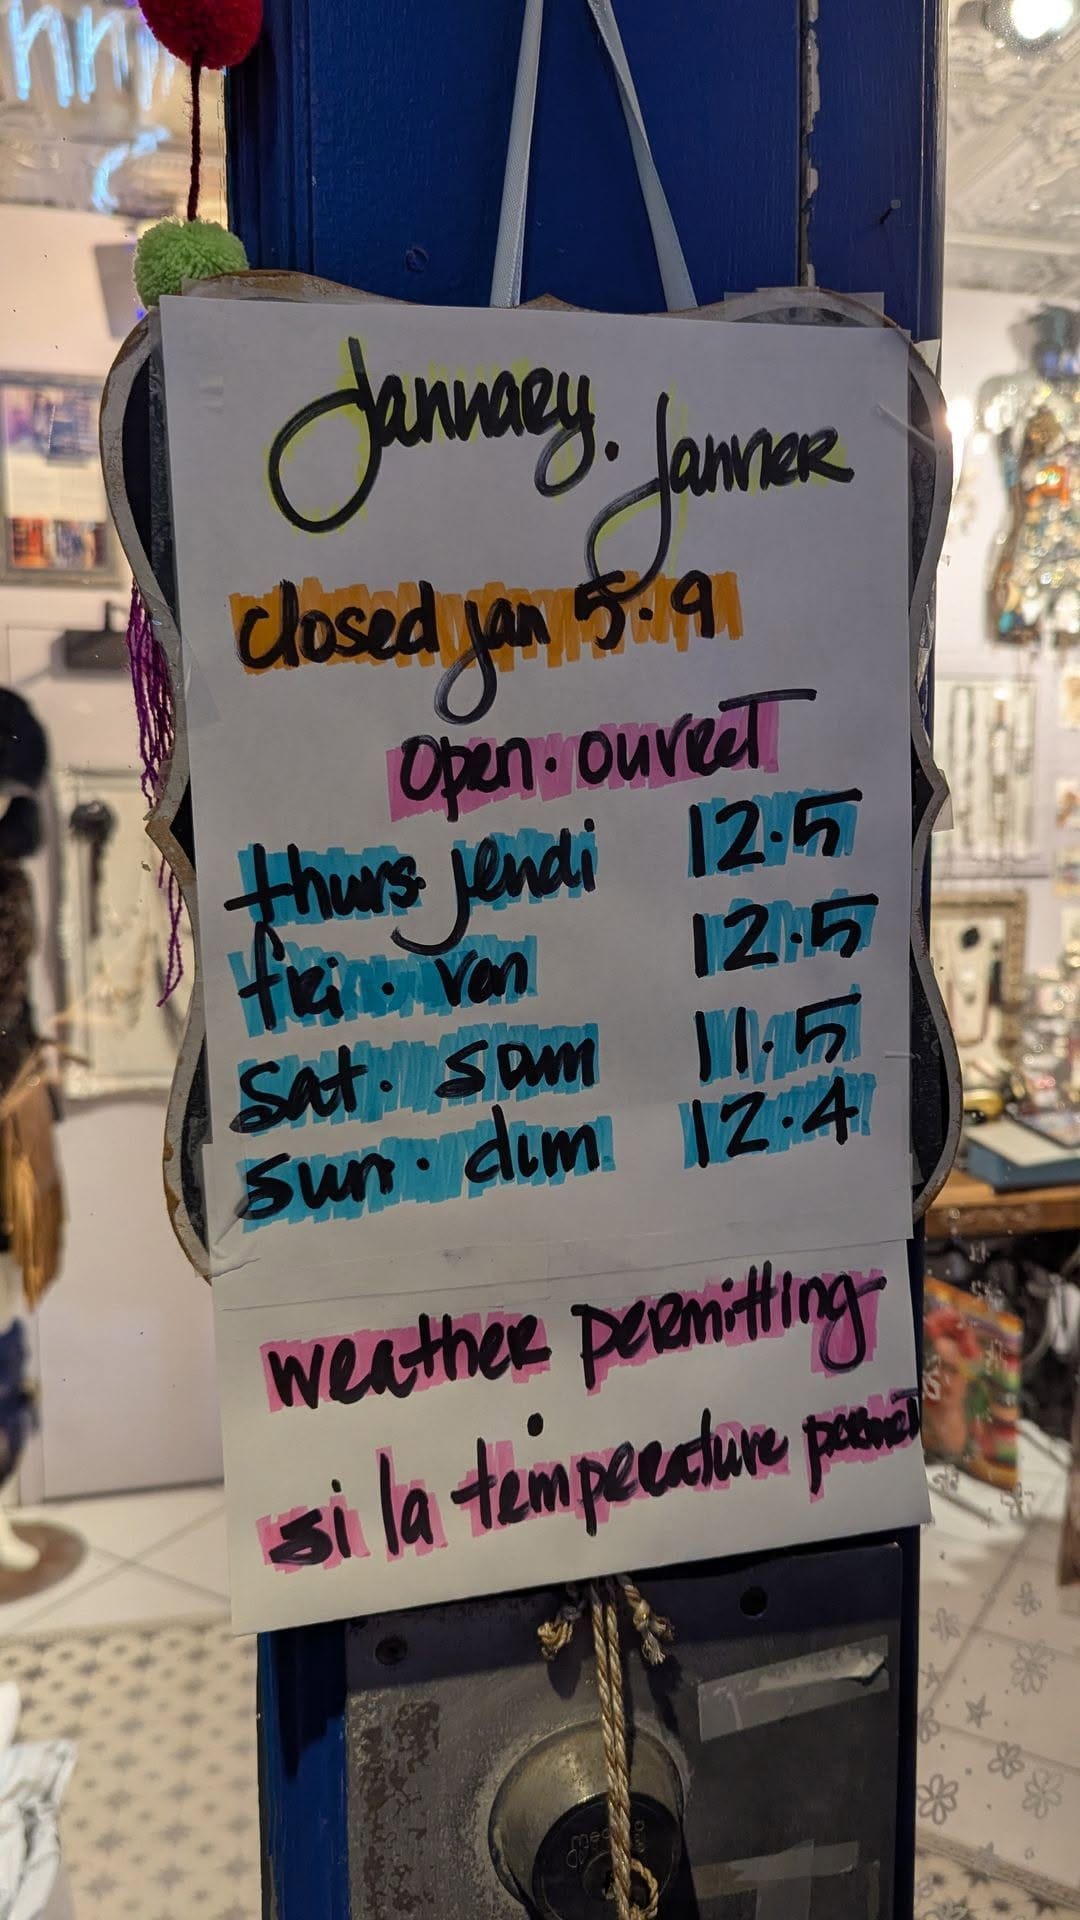 January. Janvier
closed jan 5.9
open. ouvert
thurs. jendi 12.5
fri. ven 12.5
sat. sam 11.5
sun. dim 12.4
weather permitting
•
si la temperature permet